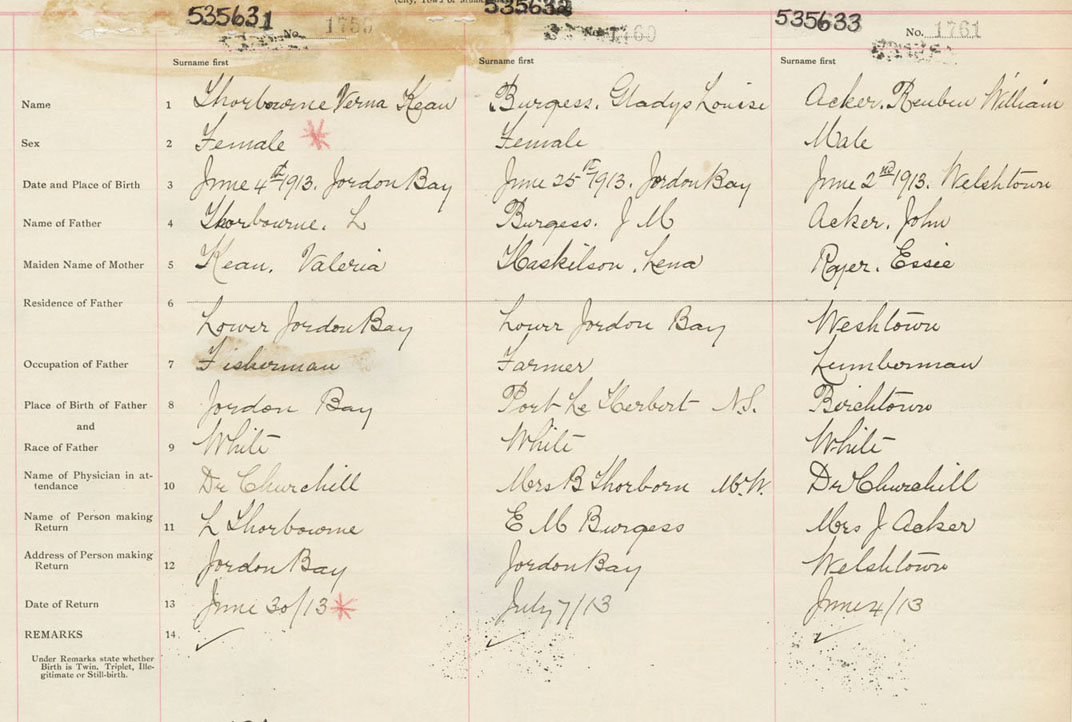 (City, Town or
535631 535632 535633
No. 1759 No. 1760 No. 1761
Surname first Surname first Surname first
Name 1 Thorbourne Verna Kean Burgess. Gladys Louise Acker. Reuben William
Sex 2 Female Female Male
Date and Place of Birth 3 June 4th 1913. Jordon Bay June 25th 1913. Jordon Bay June 2nd 1913. Welshtown
Name of Father 4 Thorbourne. L Burgess. J M Acker. John
Maiden Name of Mother 5 Kean. Valeria Haskilson. Lena Royer. Essie
Residence of Father 6
Lower Jordon Bay Lower Jordon Bay Weshtown
Occupation of Father 7 Fisherman Farmer Lumberman
Place of Birth of Father 8 Jordon Bay Port Le Herbert N.S. Birchtown
and
Race of Father 9 White White White
Name of Physician in at-
tendance 10 Dr Churchill Mrs B Thorborn M.W. Dr Churchill
Name of Person making
Return 11 L Thorbourne E M Burgess Mrs J Acker
Address of Person making
Return 12 Jordon Bay Jordon Bay Welshtown
Date of Return 13 June 30/13 July 7/13 June 4/13
REMARKS 14.
Under Remarks state whether
Birth is Twin, Triplet, Ille-
gitimate or Still-birth.